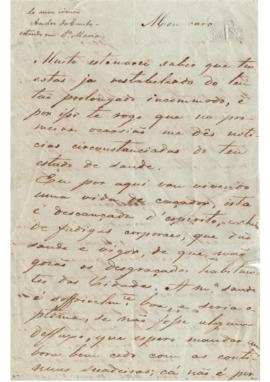 Meu caro
Muito estimarei saber que tu
estás ja restabelecido do teu
tão prolongado incommodo, e
por isso te rogo que na pri
meira occasião me dês noti
cias circunstanciadas do teu
estado de saude.
Eu por aqui vou vivendo
uma vida de caçador, isto
é descançada d'espirito, e cheia
de fadigas corporaes, que dão
saude e vigor, de que mal
gozão os desgraçados habitan
tes das Cidades. A mª saude
é boa, seria
optima, se não fosse algum
defluxo, que espero mandar em
bora bem cedo com as conti
nuas suadeiras; cá não é por